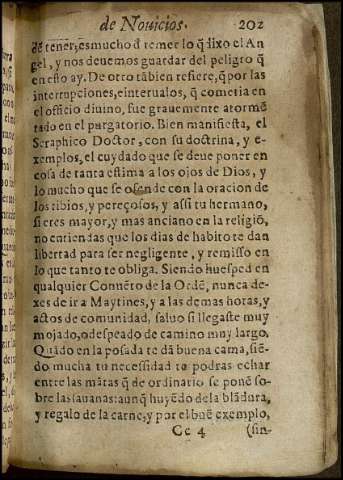 de Nouicios. 202
dẽ tener, es mucho đ temer lo q̃ dixo el An
gel, y nos deuemos guardar del peligro q̃
en esto ay. De otro tãbien refiere, q̃ por las
interrupciones, e interualos, q̃ cometia en
el officio diuino, fue grauemente atormẽ
tado en el purgatorio. Bien manifiesta, el
Seraphico Doctor, con su doctrina, y e-
xemplos, el cuydado que se deue poner en
cosa de tanta estima a los ojos de Dios, y
lo mucho que se ofende con la oracion de
los tibios, y pereçosos, y assi tu hermano,
si eres mayor, y mas anciano en la religiõ,
no entiendas que los dias de habito te dan
libertad para ser negligente, y remisso en
lo que tanto te obliga. Siendo huesped en
qualquier Conuẽto de la Ordẽ, nunca de-
xes de ir a Maytines, y a las demas horas, y
actos de comunidad, saluo si llegaste muy
mojado, o despeado de camino muy largo.
Quãdo en la posada te dã buena cama, siẽ-
do mucha tu necessidad te podras echar
entre las mãtas q̃ de ordinario se ponẽ so-
bre las sauanas: aunq̃ huyẽdo de la blãdura,
y regalo de la carne, y por el buẽ exemplo,
Cc 4 (sin-